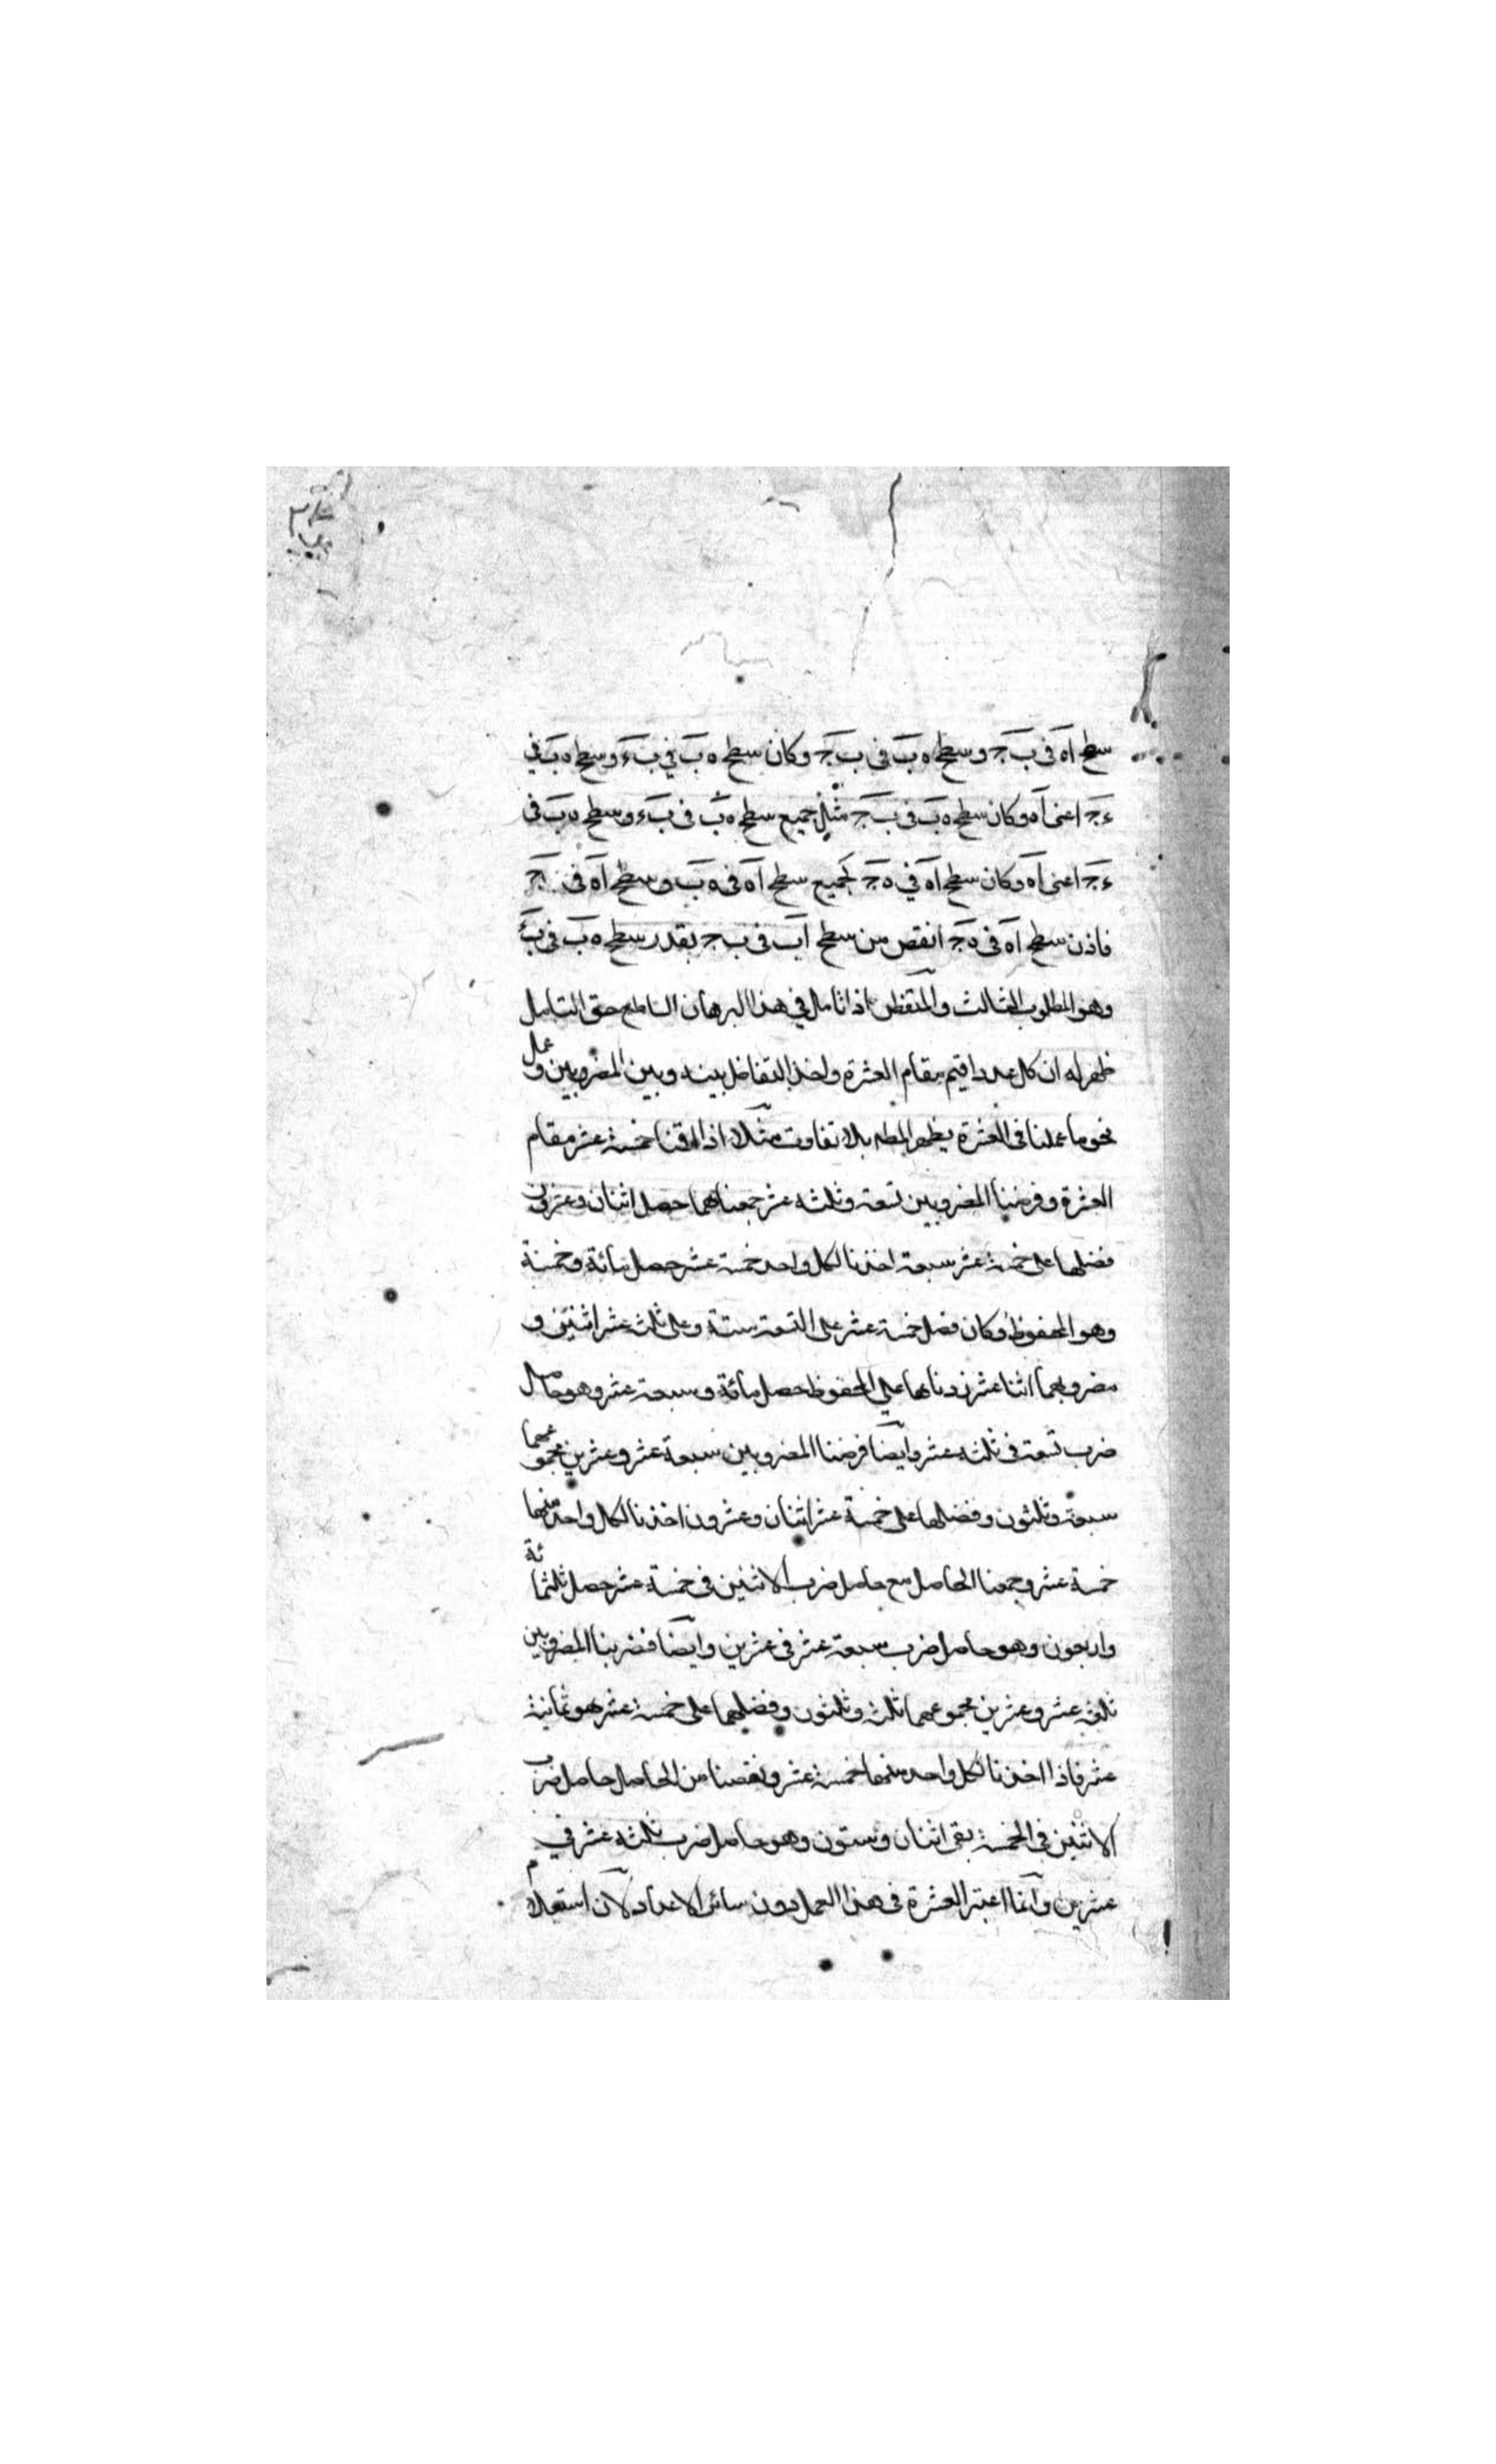 سطح اه فى ب ج وسطح ه ب فى ب ج وكان سطح ه ب في ب ء وسطح ه ب في
ء ج اعنى اه وكان سطح ه ب فى ب ج مثل جميع سطح ه ب فى ب ء وسطح ه ب فى
ء ج اعنى اه وكان سطح اه في ه ج لجميع سطح اه فى ه ب وسطح اه فى ب ج
فاذن سطح اه فى ه ج انقص من سطح اب فى ب ج بقدر سطح ه ب فى ب ء
وهو المطلوب الثالث والمتفطن اذا تامل في هذا البرهان الساطع حق التامل
ظهر له ان كل عدد اقيم مقام العشرة واخذ التفاضل بينه وبين المضروبين وعمل
نحو ما عملنا فى العشرة يظهر المط بلا تفاوت مثلا اذا اقمنا خمسة عشر مقام
العشرة وفرضنا المضروبين تسعة وثلثه عشر جمعناهما حصل اثنان وعشرون
فضلها على خمسة عشر سبعة اخذنا لكل واحد خمسة عشر حصل مائة وخمسة
وهو المحفوظ وكان فضل خمسة عشر على التسعة ستة وعلى ثلث عشر اثنين و
مضروبهما اثنا عشر زدناها على المحفوظ حصل مائة وسبعة عشر وهو حاصل
ضرب تسعة فى ثلثه عشر وايضا فرضنا المضروبين سبعة عشر وعشرين مجموعهما
سبعة وثلثون وفضلها على خمسة عشر اثنان وعشرون اخذنا لكل واحد منها
خمسة عشر وجمعنا الحاصل مع حاصل ضرب الاثنين فى خمسة عشر حصل ثلثمائة
واربعون وهو حاصل ضرب سبعة عشر فى عشرين وايضا فضربنا المضروبين
ثلثة عشر وعشرين مجموعهما ثلث وثلثون وفضلهما على خمسة عشر هو ثمانية
عشر فاذا اخذنا لكل واحد منها خمسة عشر ونقصنا من الحاصل حاصل ضرب
الاثنين في الخمسة بقى اثنان وستون وهو حاصل ضرب ثلثه عشر في
عشرين وانما اعتبر العشرة فى هذا العمل دون سائر الاعداد لان استعلام